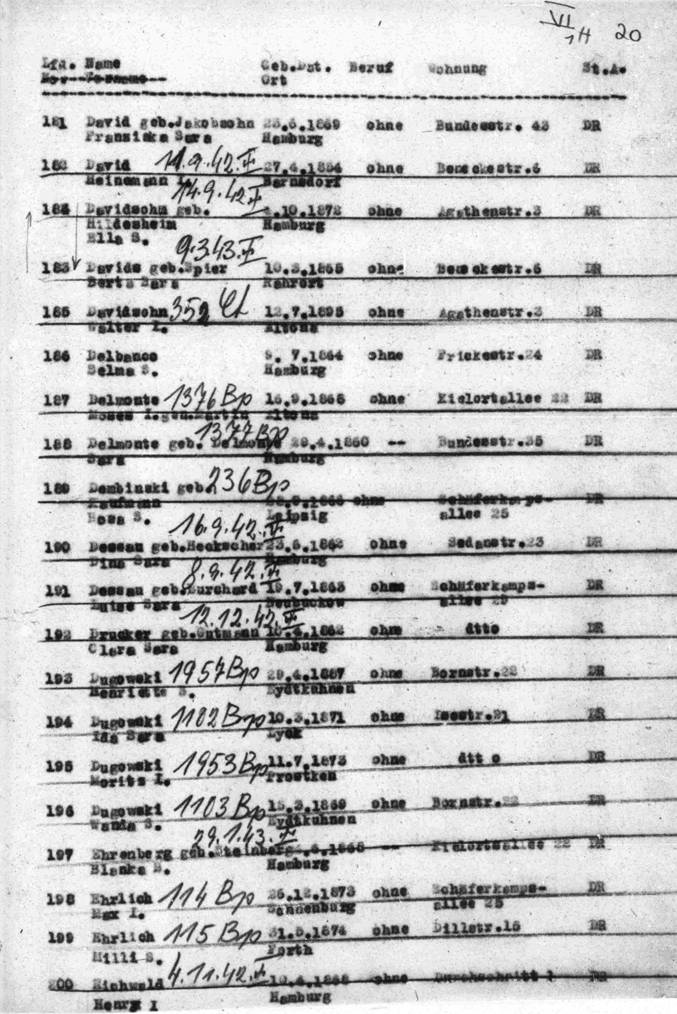 VI
1H 20
Lfd. Name Geb.Dat. Beruf Wohnung St.A.
Nor. Vorname Ort
181 David geb.Jakobsohn 23.6.1869 ohne Bundesstr. 43 DR
Fransiska Sara Hamburg
182 David 11.9.42 27.4.1884 ohne Beneckestr.6 DR
Heinemann I. Barnsdorf
14.9.42
184 Davidsohn geb. .10.1872 ohne Agathenstr.3 DR
Hildesheim Hamburg
Ella S.
9.3.43.
183 Davids geb.Spier 10.3.1865 ohne Beneckestr.6 DR
Berta Sara Ruhrort
185 Davidsohn 352 12.7.1895 ohne Agathenstr.3 DR
Walter I. Altona
186 Delbanco 9. 7.1864 ohne Frickestr.24 DR
Selma S. Hamburg
187 Delmonte 1376 Bp 16.9.1865 ohne Kielortallee 22 DR
Moses I.gen.Martin Altona
1377 Bp
188 Delmonte geb. Delmonte 29.4.1860 -- Bundesstr.35 DR
Sara Hamburg
189 Dembinski geb. 236 Bp ohne Schäferkamps- DR
Kaufmann Leipzig allee 25
Rosa S.
16.9.42.
190 Dessau geb.Heckscher 23.6.1862 ohne Sedanstr.23 DR
Dina Sara Hamburg
8.9.42.
191 Dessau geb.Burchard 19.7.1863 ohne Schäferkamps- DR
Luise Sara Neubuckow allee 25
12.12.42.
192 Drucker geb.Gutmann .4.1862 ohne dtto DR
Clara Sara Hamburg
193 Dugowski 1957 Bp 29.4.1887 ohne Bornstr.22 DR
Henriette S. Eydtkuhnen
194 Dugowski 1102 Bp 10.3.1871 ohne Isestr.21 DR
Ida Sara Lyck
195 Dugowski 1953 Bp 11.7.1873 ohne dtt o DR
Moritz I. Prostken
196 Dugowski 1103 Bp 15.3.1869 ohne Bornstr.22 DR
Wanda S. Eydtkuhnen
29.1.43.
197 Ehrenberg geb.Steinberg -- Kielortsallee 22 DR
Blanka S. Hamburg
198 Ehrlich 114 Bp 26.12.1873 ohne Schäferkamps- DR
Max I. Sonnenburg allee 25
199 Ehrlich 115 Bp 31.5.1874 ohne Dillstr.15 DR
Milli S. Forth
4.11.42.
200 Eichwald ohne Durchschnitt DR
Henry I Hamburg